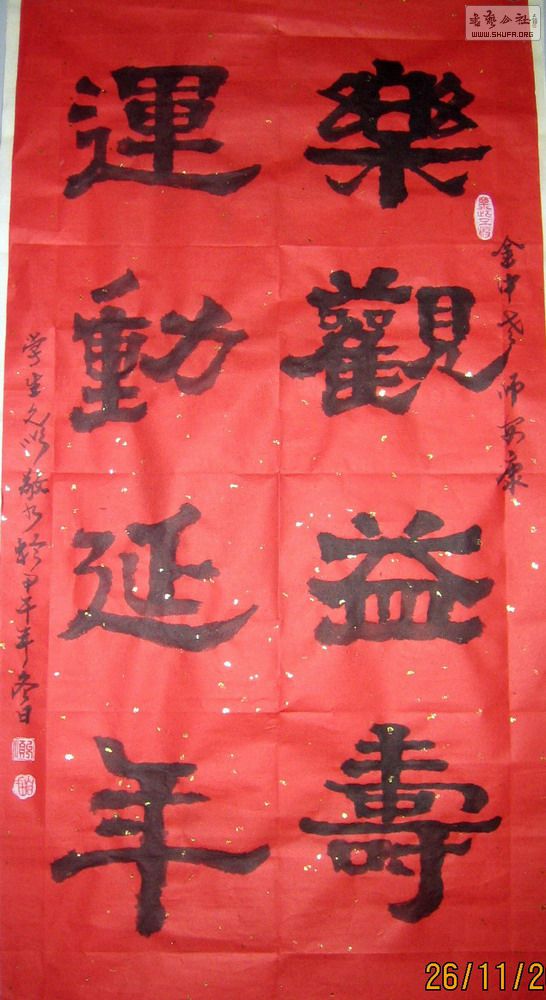 樂觀益壽
運動延年
金中老師安康
學生允以敬書於甲午年冬日
書藝公社
WWW.SHUFA.ORG
26/11/2